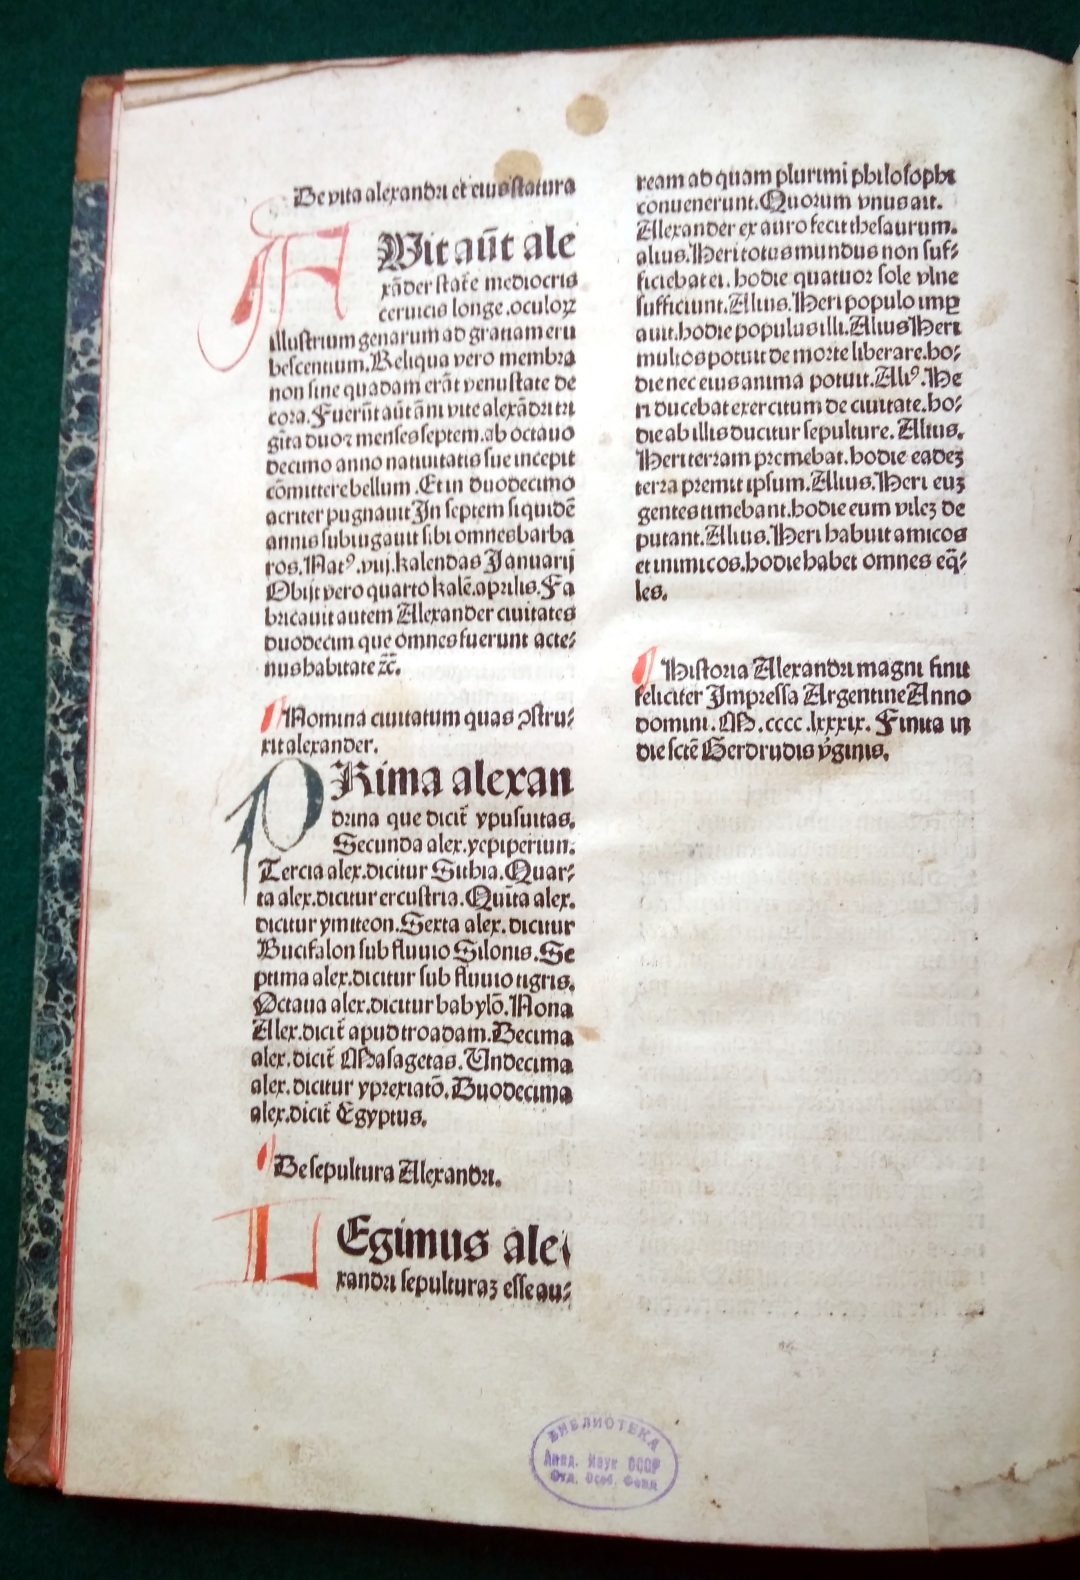 De vita alexandri et eius statura
A Wit aūt ale
xāder state mediocris
ceruicis longe.oculoꝝ
illustrium genarum ad gratiam eru
bescentium.Reliqua vero membra
non sine quadam erāt venustate de
cora.Fuerūt aūt āni vite alexādri tri
gīta duoꝛ menses septem.ab octauo
decimo anno natiuitatis sue incepit
cōmittere bellum.Et in duodecimo
acriter pugnauit In septem siquidē
annis subiugauit sibi omnes barba
ros.Natꝰ.vij.kalendas Januarij
Obijt vero quarto kalē.aprilis.Fa
bricauit autem Alexander ciuitates
duodecim que omnes fuerunt acte⸗
nus habitate ⁊c̄.
Nomina ciuitatum quas ꝯstru⸗
xit alexander.
P Rima alexan
drina que dicit̄ ypusuitas.
Secunda alex.yepiperiun.
Tercia alex.dicitur Sithia.Quar⸗
ta alex.dicitur ercustria.Quīta alex.
dicitur ymiteon.Sexta alex.dicitur
Bucifalon sub fluuio Silonis.Se
ptima alex.dicitur sub fluuio tigris.
Octaua alex.dicitur babylō.Nona
Alex.dicit̄ apud troadam.Decima
alex.dicit̄ Masagetas.Undecima
alex.dicitur yprexiatō.Duodecima
alex.dicit̄ Egyptus.
De sepultura Alexandri.
L Egimus ale
xandri sepulturaꝫ esse au⸗
ream ad quam plurimi philosophi
conuenerunt.Quorum vnus ait.
Alexander ex auro fecit thesaurum.
alius.Heri totus mundus non suf⸗
ficiebat ei.hodie quatuor sole vlne
sufficiunt.Alius.Heri populo imꝑ
auit.hodie populus illi.Alius Heri
multos potuit de morte liberare.ho⸗
die nec eius anima potuit.Aliꝰ.He
ri ducebat exercitum de ciuitate.ho⸗
die ab illis ducitur sepulture.Alius.
Heri terram premebat.hodie eadeꝫ
terra premit ipsum.Alius.Heri euꝫ
gentes timebant.hodie eum vileꝫ de
putant.Alius.Heri habuit amicos
et inimicos.hodie habet omnes eq̄⸗
les.
Historia Alexandri magni finit
feliciter Impressa Argentine Anno
domini.M.cccc.lxxxix.Finita in
die sctē Gerdrudis v̄ginis.
БИБЛИОТЕКА
Акад. Наук СССР
Отд. Особ. Фонд